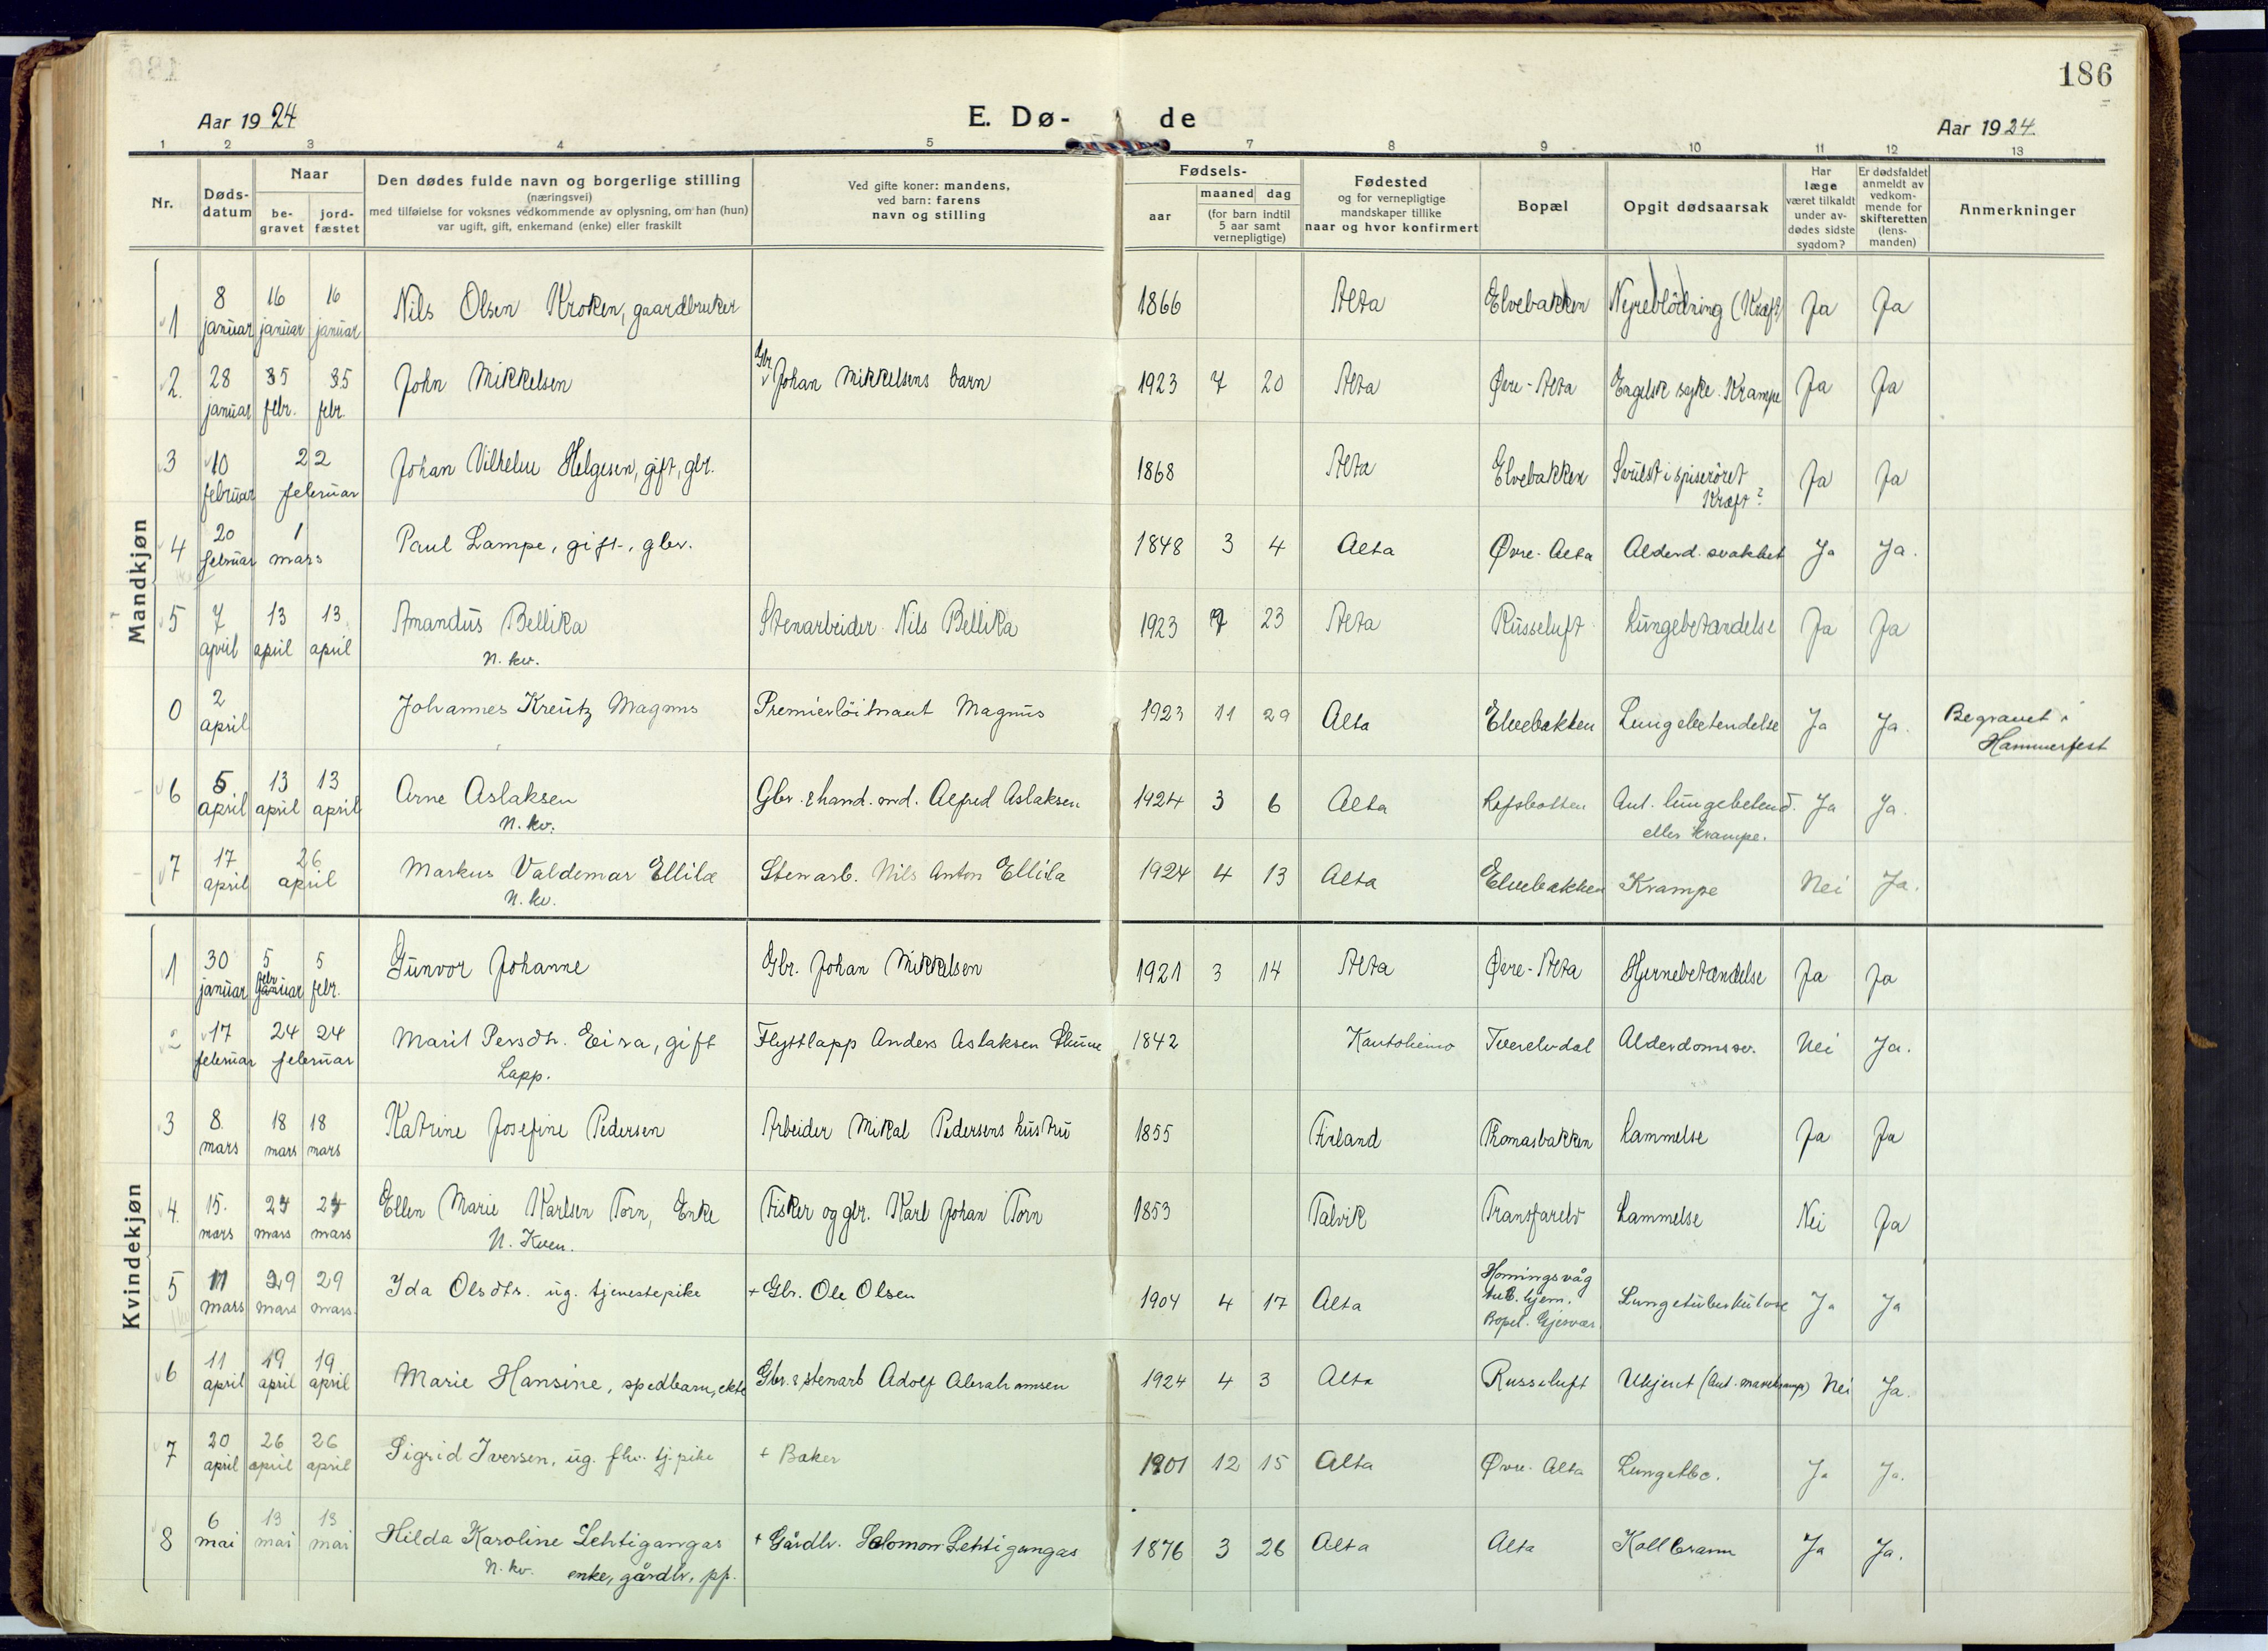 186
Aar 1924
E. Dø- de
Aar 1924.
1 2 3 4 5 7 8 9 10 11 12 13
Nr.
Døds-
datum
Naar
be-
gravet
jord-
fæstet
Den dødes fulde navn og borgerlige stilling
(næringsvei)
med tilføielse for voksnes vedkommende av oplysning, om han (hun)
var ugift, gift, enkemand (enke) eller fraskilt
Ved gifte koner: mandens,
ved barn: farens
navn og stilling
Fødsels-
aar
maaned dag
(for barn indtil
5 aar samt
vernepligtige)
Fødested
og for vernepligtige
mandskaper tillike
naar og hvor konfirmert
Bopæl
Opgit dødsaarsak
Har
læge
været tilkaldt
under av-
dødes sidste
sygdom?
Er dødsfaldet
anmeldt av
vedkom-
mende for
skifteretten
(lens-
manden)
Anmerkninger
Mandkjøn
1 8 januar 16 januar 16 januar Nils Olsen Kroken, gaardbruker 1866 Alta Elvebakken Nyreblödning (Kræft) Ja Ja
2. 28 januar 5 febr. 5 febr. John Mikkelsen Gbr. Johan Mikkelsens barn 1923 7 20 Alta Øvre-Alta Engelsk syke. Krampe Ja Ja
3 10 februar 22 februar Johan Vilhelm Helgesen, gift, gbr. 1868 Alta Elvebakken Svulst i spiseröret
Kræft? Ja Ja
4 20 februar 1 mars Paul Lampe, gift, gbr. 1848 3 4 Alta Øvre-Alta Alderd. svakhet Ja Ja.
5 7 april 13 april 13 april Amandus Bellika Stenarbeider Nils Bellika 1923 7 23 Alta Russeluft Lungebetændelse Ja Ja
N. kv.
0 2 april Johannes Kreutz Magnus Premierlöitnant Magnus 1923 11 29 Alta Elvebakken Lungebetendelse Ja Ja. Begravet i
Hammerfest
6 5 april 13 april 13 april Arne Aslaksen Gbr. & hand.md. Alfred Aslaksen 1924 3 6 Alta Rafsbotten Ant. lungebetend. Ja Ja.
N. kv. eller krampe.
7 17 april 26 april Markus Valdemar Ellila Stenarb. Nils Anton Ellila 1924 4 13 Alta Elvebakken Krampe Nei Ja.
N. kv.
Kvindekjøn
1 30 januar 5 febr 5 febr. Gunvor Johanne Gbr. Johan Mikkelsen 1921 3 14 Alta Øvre-Alta Hjernebetændelse Ja Ja
2 17 februar 24 24 februar Marit Persdtr. Eira, gift Flyttlapp Anders Aslaksen 1842 Kautokeino Tverelvdal Alderdomssv. Nei Ja.
Lapp.
3 8. mars 18 mars 18 mars Katrine Josefine Pedersen Arbeider Mikal Pedersens hustru 1855 Finland Thomasbakken Lammelse Ja Ja
4. 15. mars 24 mars 24 mars Ellen Marie Karlsen Torn, Enke Fisker og gbr. Karl Johan Torn 1853 Talvik Transfarelv Lammelse Nei Ja
N. Kven.
5 11 mars 29 mars 29 mars. Ida Olsdtr. ug. tjenestepike + Gbr. Ole Olsen 1904 4 17 Alta Honningsvåg
tub. hjem.
Bopel. Gjesvær Lungetuberkulose Ja Ja
6 11 april 19 april 19 april Marie Hansine, spedbarn, ekte Gbr. & stenarb Adolf Abrahamsen 1924 4 3 Alta Russeluft Ukjent (Ant. mavekrampe) Nei Ja.
7 20 april 26 april 26 april Sigrid Iversen, ug. fhv. tj.pike + Baker 1901 12 15 Alta Øvre-Alta Lungetbc. Ja Ja.
8 6 mai 13 mai 13 mai Hilda Karoline Lehtigangas + Gårdbr. Salomon Lehtigangas 1876 3 26 Alta Alta Koldbrann Ja Ja.
N. kv. enke, gårdbr. pp.